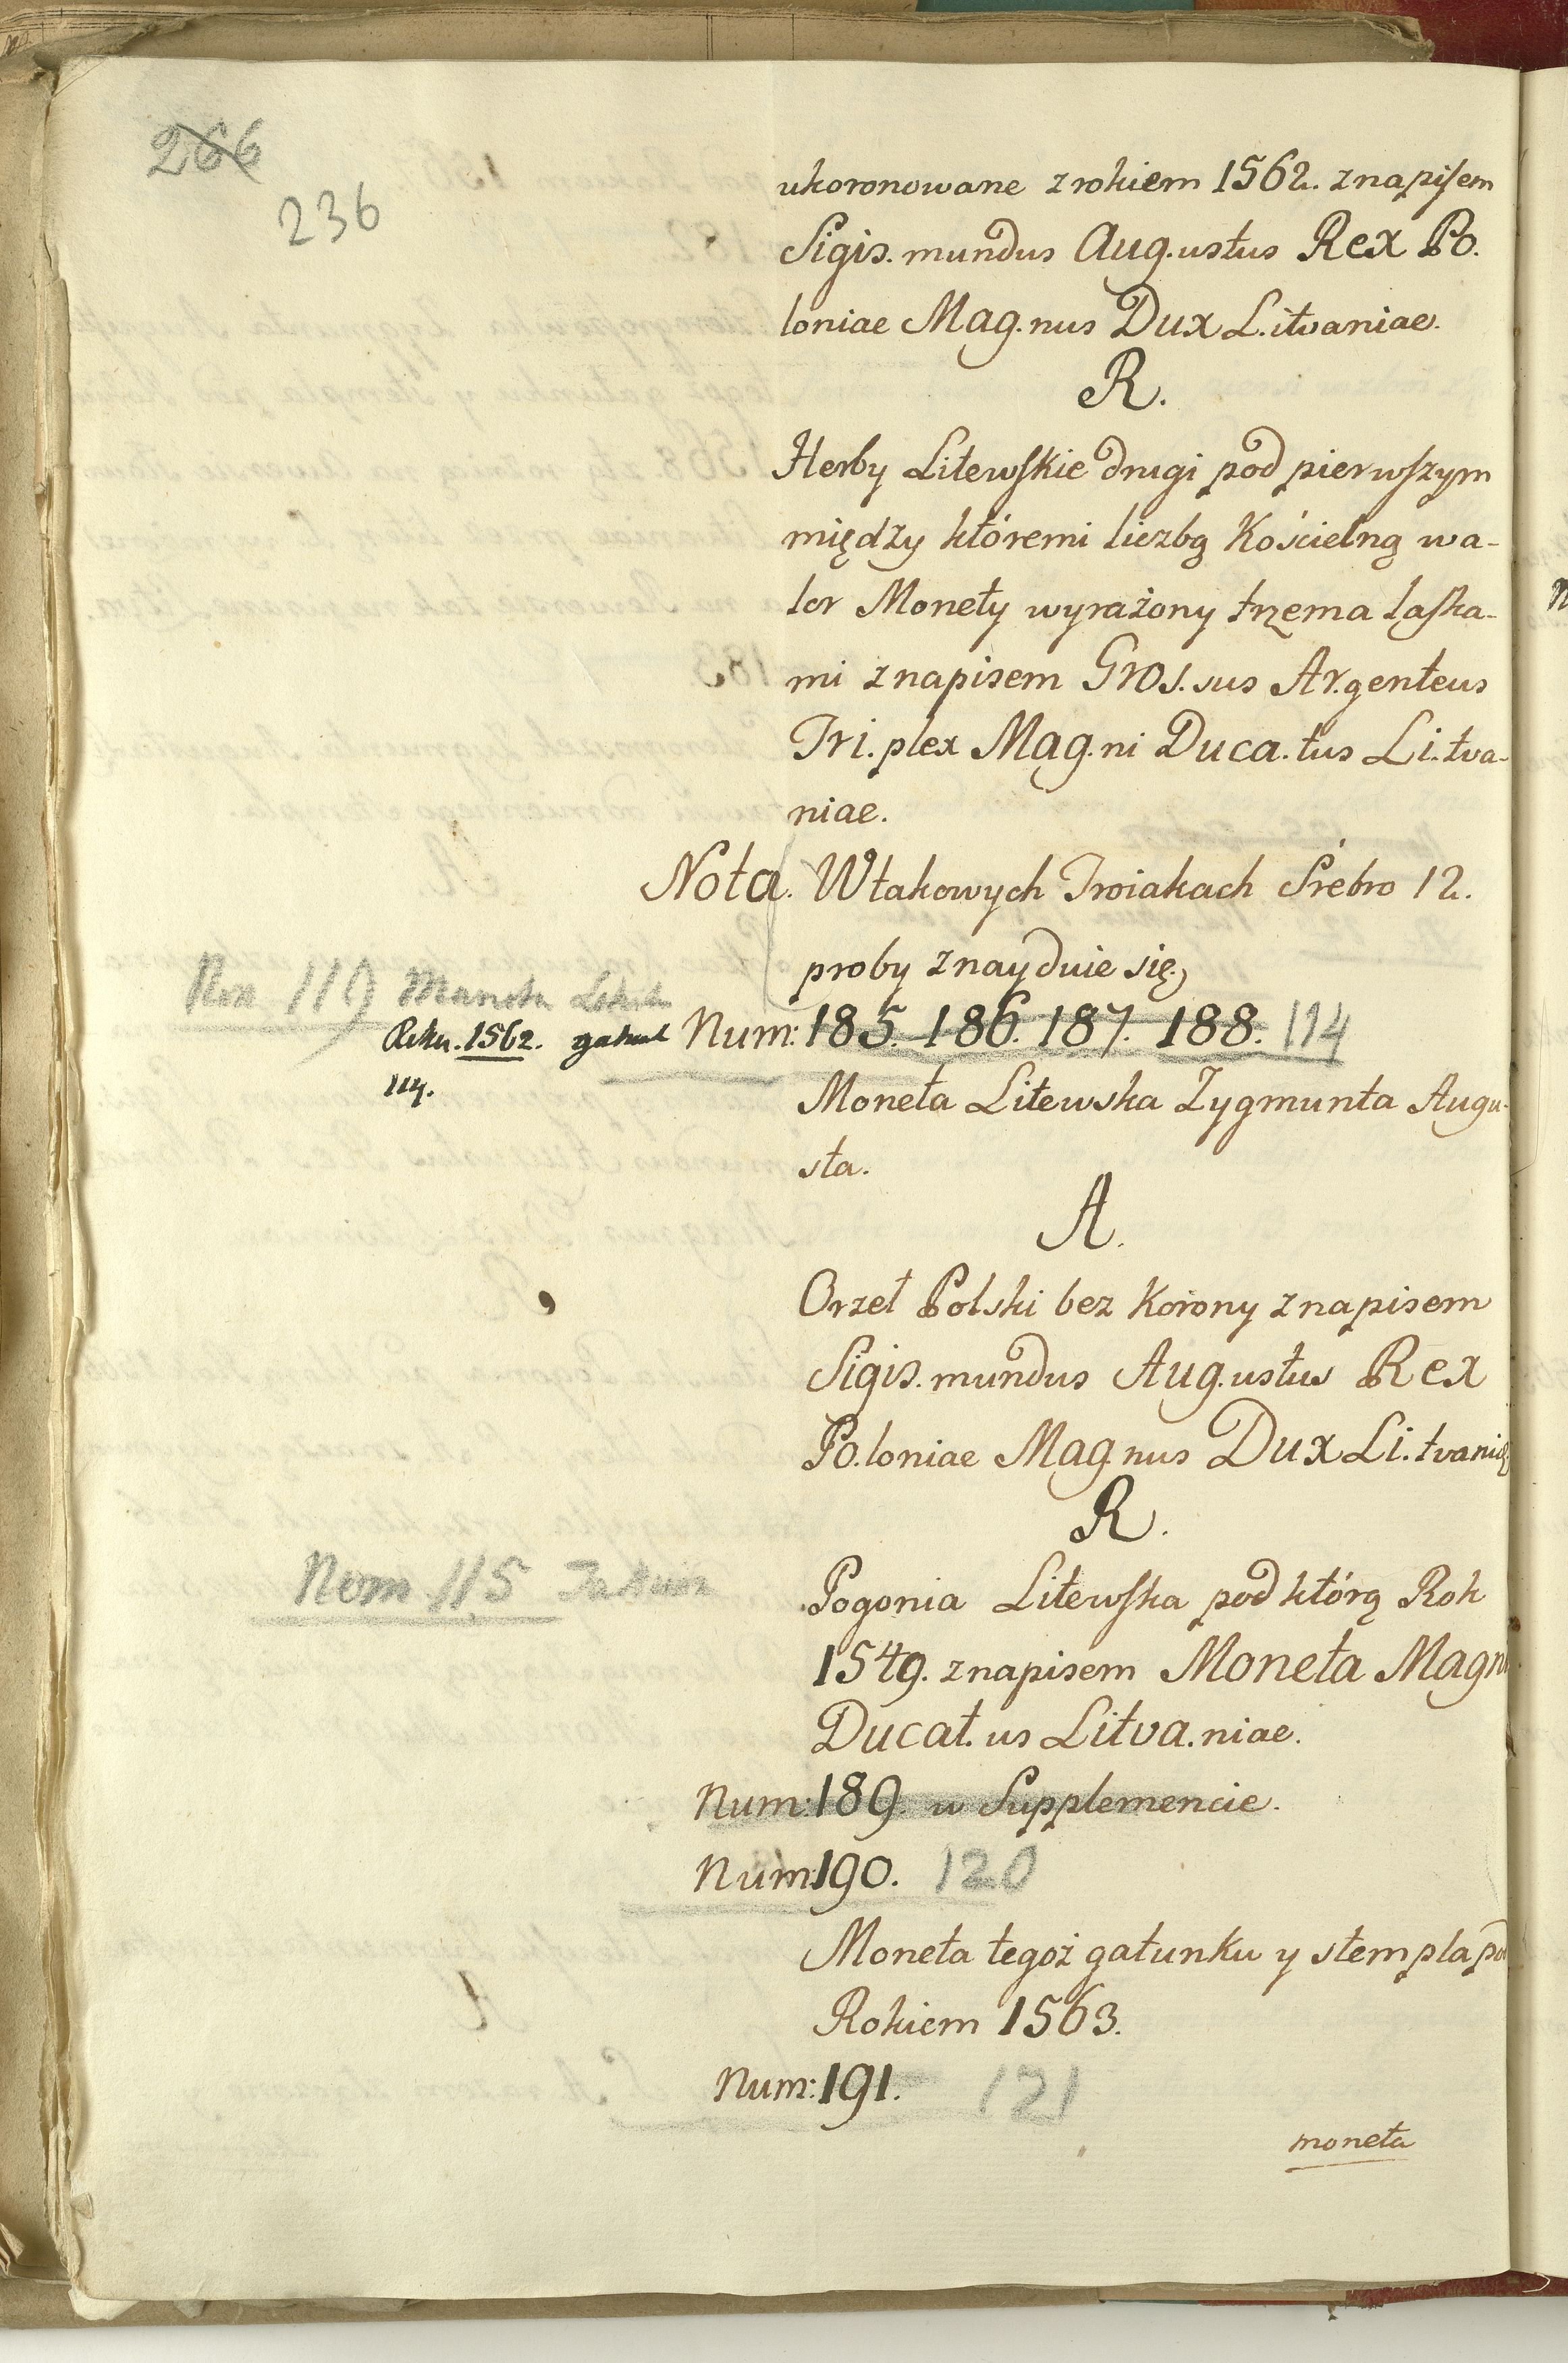 266
236
ukoronowane z rokiem 1562. z napisem
Sigis.mundus Aug.ustus Rex Po.
loniae Mag.nus Dux L.itvaniae.
R.
Herby Litewskie drugi pod pierwszym
między któremi liczbą Kościelną wa-
lor Monety wyrażony trzema laska-
mi z napisem Gros.sus Ar.genteus
Tri.plex Mag.ni Duca.tus Li.tva-
niae.
Nota. W takowych Troiakach Śrebro 12.
proby znayduie się,
110 Moneta
Roku. 1562. gatunk
114.
Num: 185. 186. 187. 188. 114
Moneta Litewska Zygmunta Augu-
sta.
A.
Orzeł Polski bez Korony z napisem
Sigis.mundus Aug.ustus Rex
Po.loniae Mag.nus Dux Li.tvanię
R.
Num 115
Pogonia Litewska pod którą Rok
1549. z napisem Moneta Magni
Ducat.us Litva.niae.
Num: 189. w Supplemencie.
Num: 190. 120
Moneta tegoż gatunku y stempla pod
Rokiem 1563.
Num: 191. 121
moneta